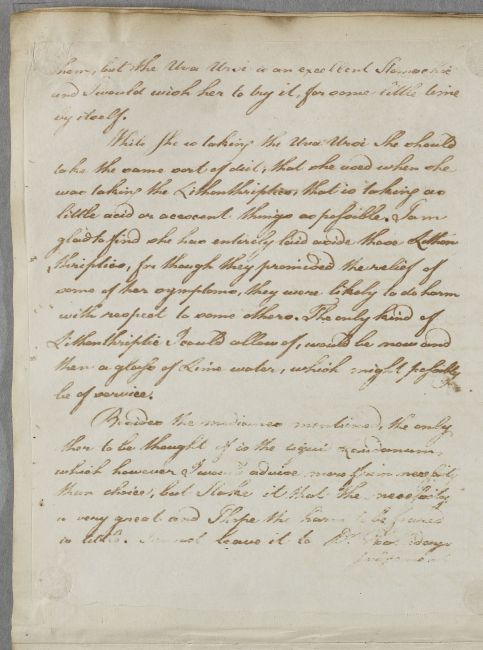 them, but the Uva Ursi is an excellent Stomachic
and I would wish her to try it, for some little time
by itself.
While She is taking the Uva Ursi She should
take the same sort of diet, that she used when she
was taking the Lithonthriptics, that is taking as
little acid or acescent things as possible. I am
glad to find she has entirely laid aside those Lithon
thriptics, for though they promised the relief of
some of her symptoms, they were likely to do harm
with respect to some others. The only kind of
Lithonthriptic I could allow of, would be now and
then a glass of Lime water, which might possibly
be of service.
Besides the medicines mentioned, the only
ther to be thought of is the liquid Laudanum,
which however I would advise more from necessity
than choice, but I take it that the necessity
is very great and I hope the harm to be feared
is little. I must leave it to Dr.